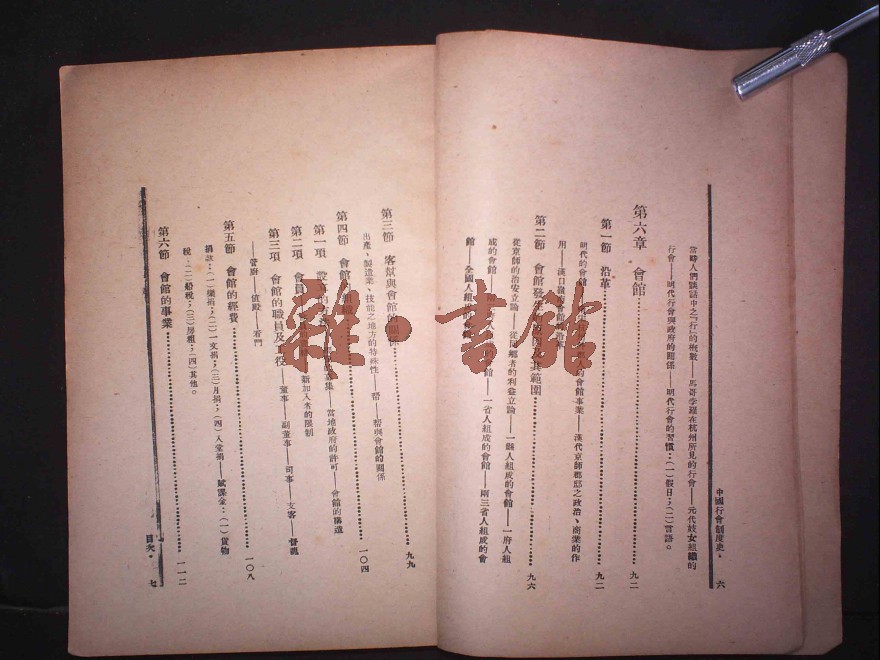 中國行會制度史 六
當時人們談話中之「行」的梅戰——馬哥孛羅在杭州所見的行會——元代妓女組織的
行會——明代行會與政府的關係——明代行會的習慣:(一)假日;(二)言語。
第六章 會館 九二
第一節 沿革 九二
明代的會館 會館事業——漢代京師郡邸之政治、商業的作
用——漢口
第二節 會館發生 範圍 九六
從京師的治安立論——從同鄉者的利益立論——一縣人組成的會館——一府人組
成的會館 一省人組成的會館——兩三省人組成的會
館——全國人組
第三節 客幫與會館的關係 九九
出產、製造業、技能之地方的特殊性——幫——幫與會館的關係
第四節 會館 一〇四
第一項 設 當地政府的許可——會館的構造
第二項 會員 新加入者的限制
第三項 會館的職員及 役——董事——副董事——司事——支客——督龍
——管廚——值殿——看門
第五節 會館的經費 一〇八
捐款:(一)樂捐;(二)一文捐;(三)月捐;(四)入堂捐——賦課金:(一)貨物
稅;(二)船稅;(三)房租;(四)其他。
第六節 會館的事業 一一二
目次 七
雜·書館